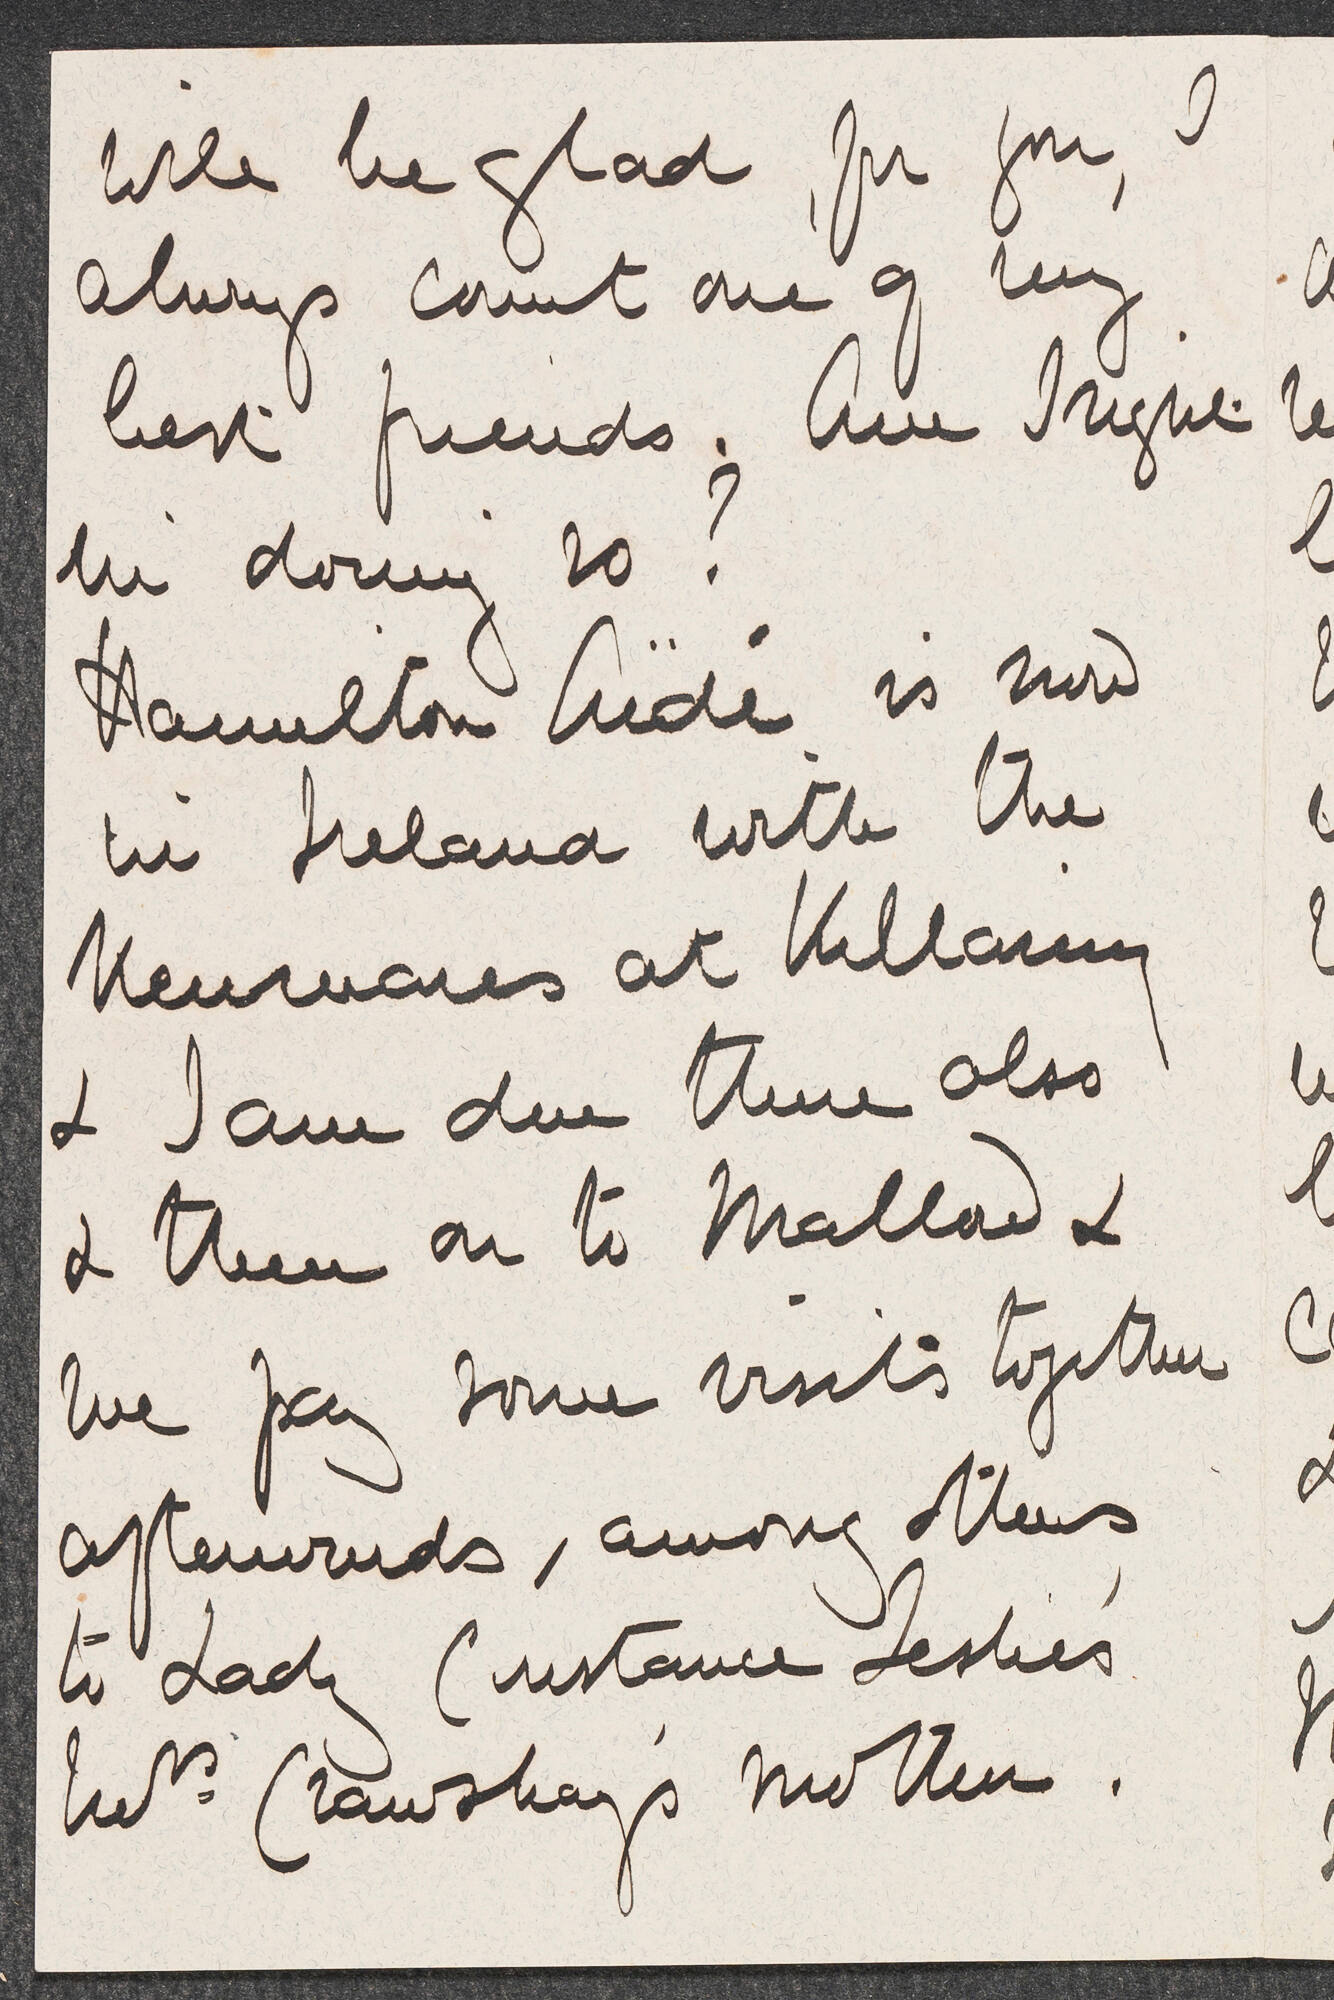 will be glad, for you, I
always count one of my
best friends. Am I right
in doing so?
Hamilton Aïdé is now
in Ireland with the
Kenmares at Killarny
& I am due there also
& then on to Mallow &
we pay some visits together
afterwards, among others,
to Lady Constance Leslie's
Mrs Crawshay's mother.